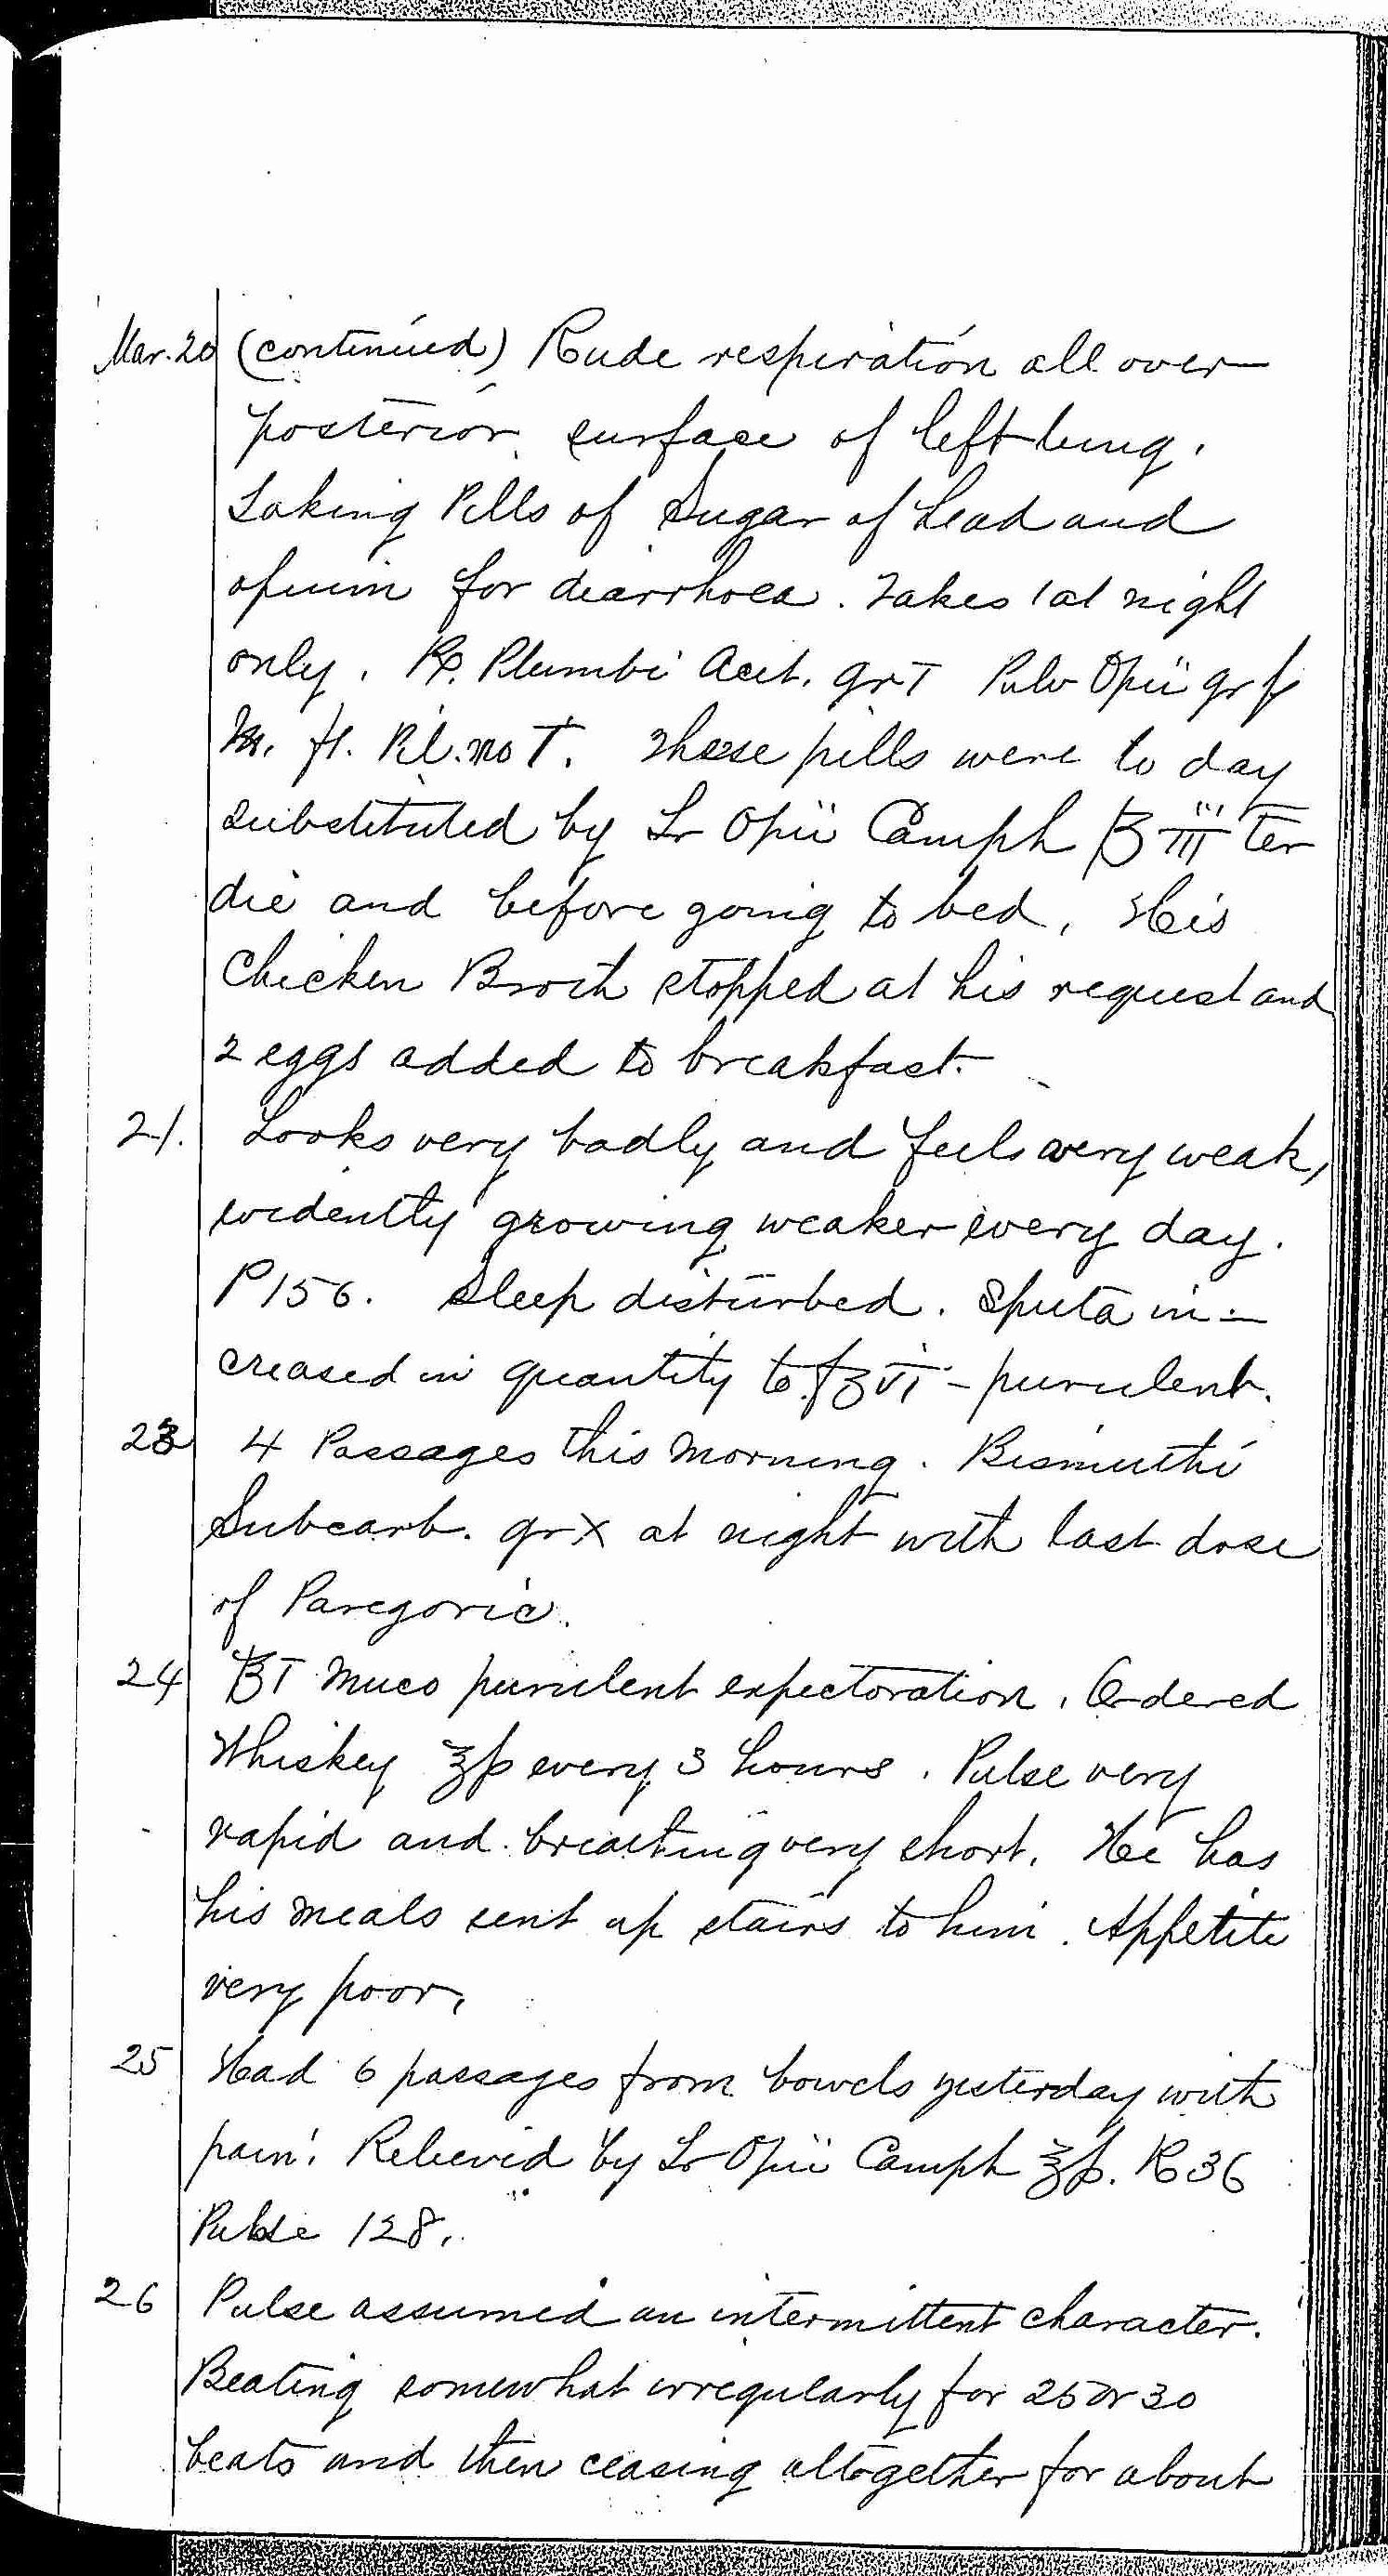 Mar. 20 (continued) Rude respiration all over
posterior surface of left lung.
Taking Pills of Sugar of Lead and
opium for diarrhoea. Takes 1 at night
only. Rx. Plumbi Acet. gr T Pulv Opii gr
M. ft. Pil. no T. These pills were to day
substituted by Tr Opii Camph ʒ III ter
die and before going to bed. His
Chicken Broth stopped at his request and
2 eggs added to breakfast.
21. Looks very badly and feels very weak,
evidently growing weaker every day.
P 156. Sleep disturbed. Sputa in-
creased in quantity to f℥ VI - purulent.
23 4 Passages this morning. Bismuthi
Subcarb. gr X at night with last dose
of Paregoric.
24 ℥T Muco purulent expectoration. Ordered
Whiskey ℥ß every 3 hours. Pulse very
rapid and breathing very short. He has
his meals sent up stairs to him. Appetite
very poor,
25 Had 6 passages from bowels yesterday with
pain. Relieved by Tr Opii Camph ℥ß. R 36
Pulse 128.
26 Pulse assumed an intermittent character.
Beating somewhat irregularly for 25 or 30
beats and then ceasing altogether for about